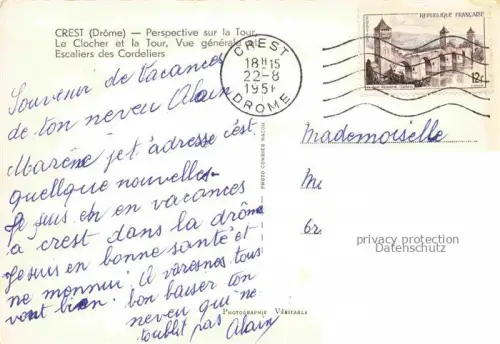 CREST (Drôme) — Perspective sur la Tour,
Le Clocher et la Tour, Vue générale et
Escaliers des Cordeliers
CREST
18H15
22-8
DROME
REPUBLIQUE FRANÇAISE
12F
Souvenir de Vacances
de ton neveu Alain
je t'adresse c'est
quellque nouvelles-
Je suis en en vacances
a crest dans la drôme
Je suis en bonne santé et
ne m'ennui. a varesnes tous
vont bien. bon baiser ton
neveu qui ne
t'oublit pas Alain
PHOTO COMBIER MACON
Photographie Véritable
Mademoiselle
privacy protection
Datenschutz